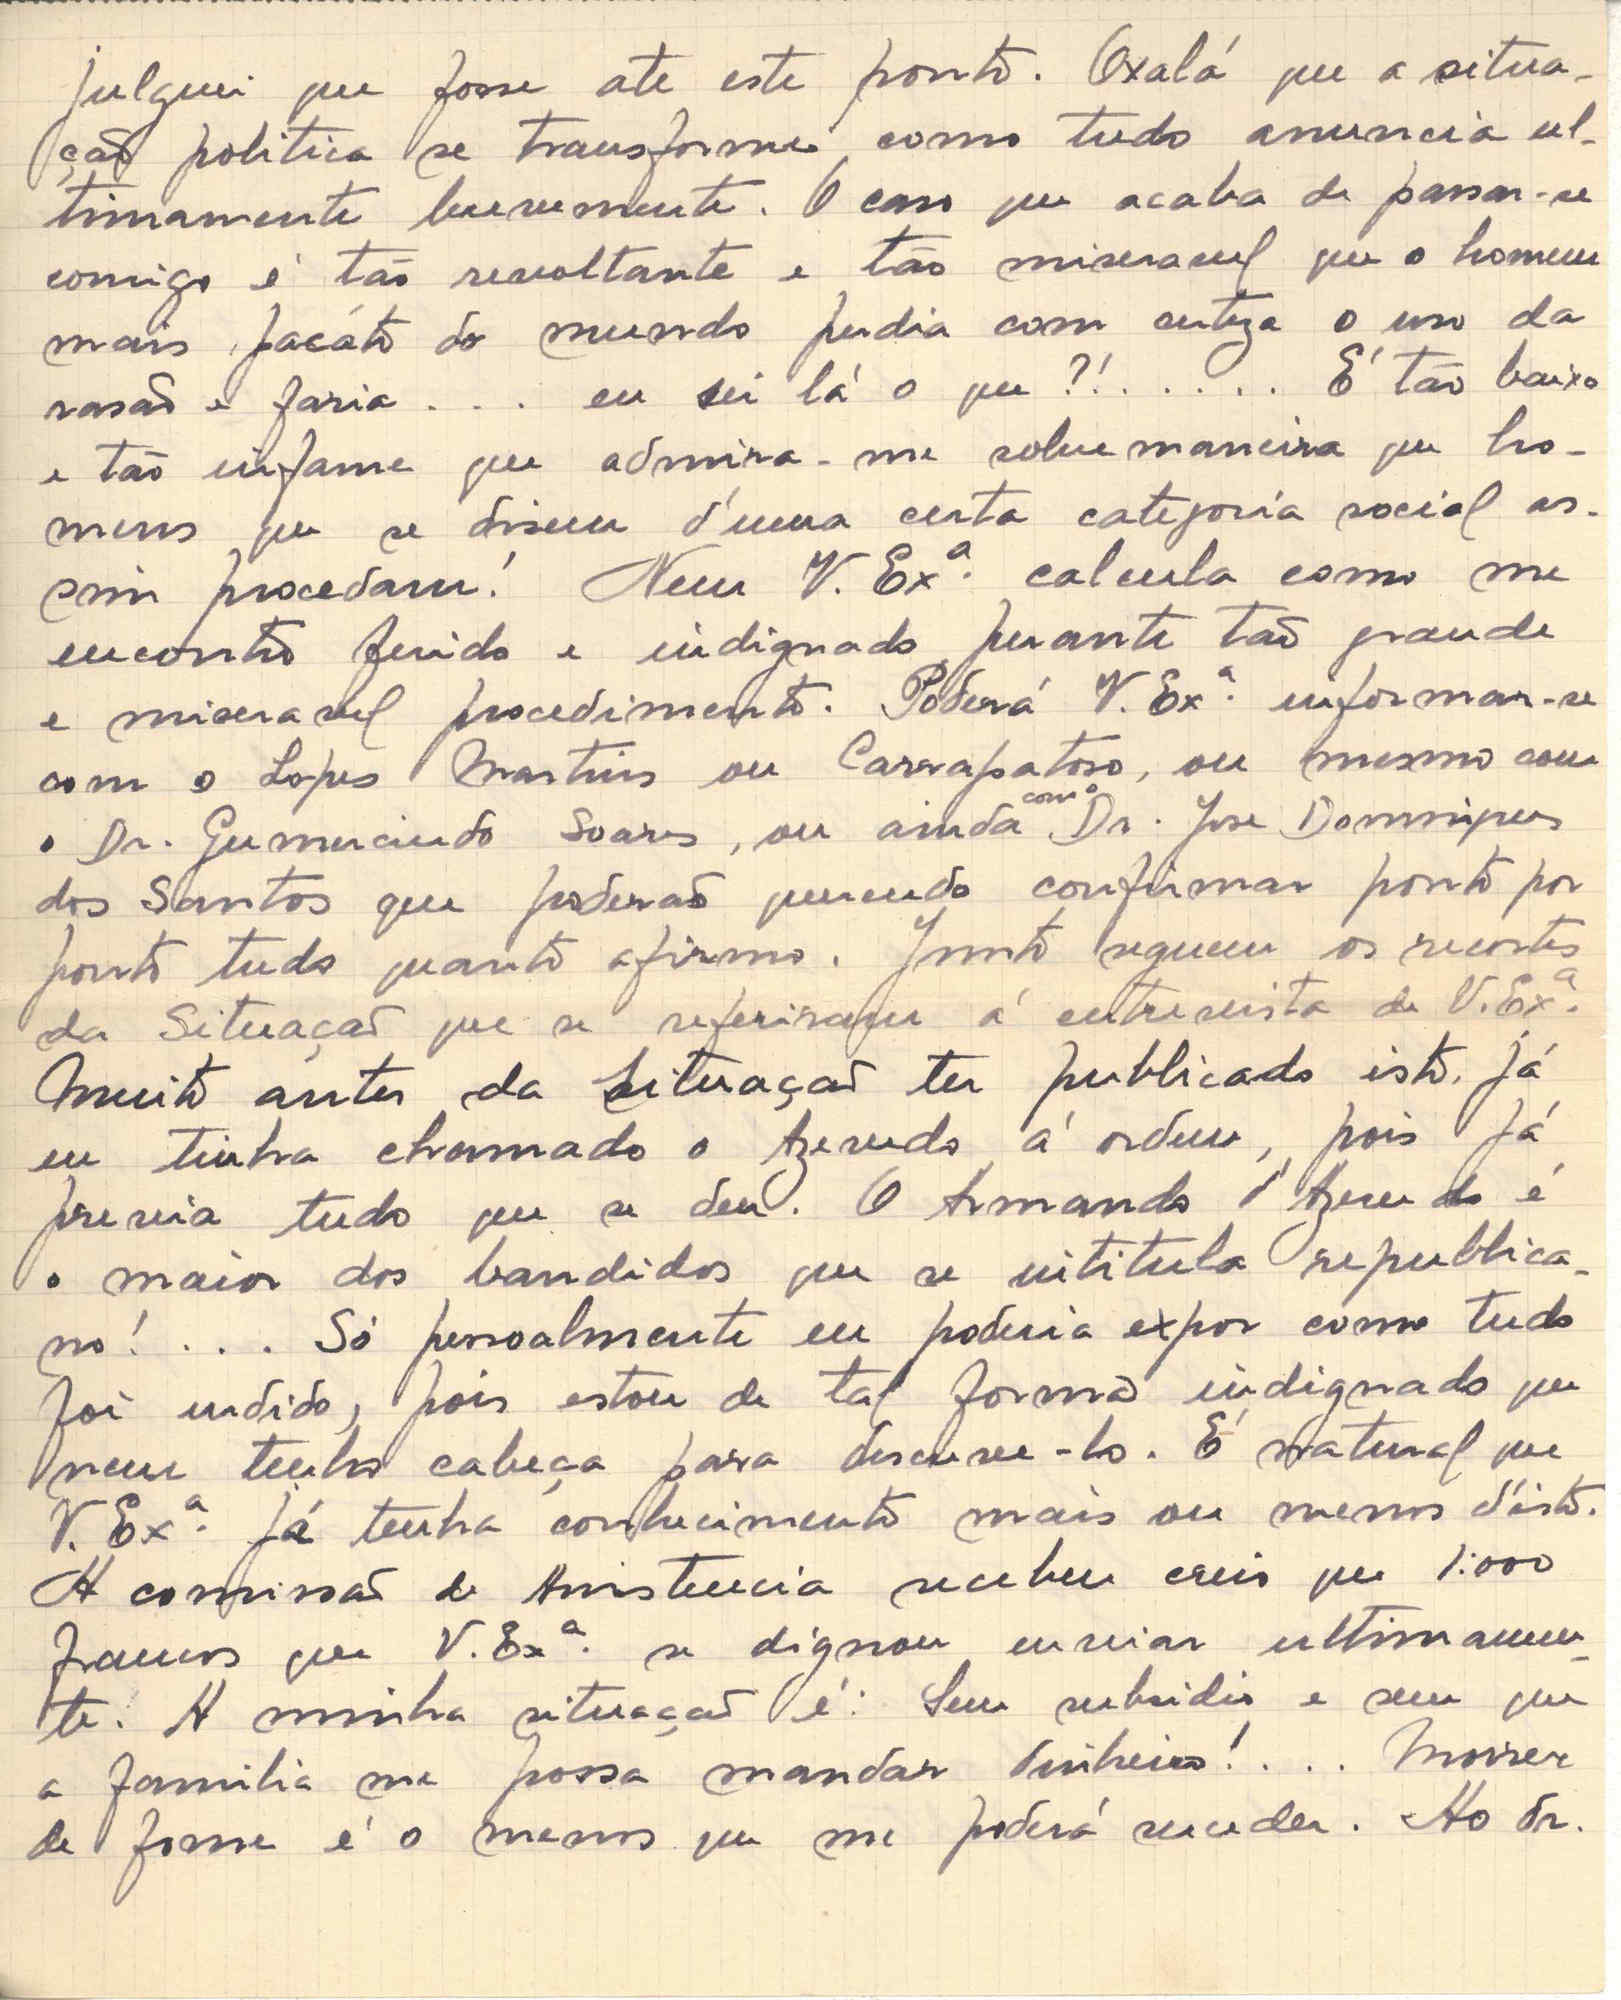 julguei que fosse ate este ponto. Oxalá que a situa-
ção politica se transforme, como tudo anuncia ul-
timamente brevemente. O caso que acaba de passar-se
comigo é tão revoltante e tão miseravel que o homem
mais pacáto do mundo perdia com certeza o uso da
rasão e faria . . . eu sei lá o que ?! . . . . . . É tão baixo
e tão infame que admira-me sobremaneira que ho-
mens que se disem d'uma certa categoria social as-
sim procedam! Nem V. Exª. calcula como me
encontro ferido e indignado perante tão grande
e miseravel procedimento. Poderá V. Exª. informar-se
com o Lopes Martins ou Carrapatoso, ou mesmo com
o Dr. Gumercindo Soares, ou ainda com o Dr. Jose Domingues
dos Santos que poderão querendo confirmar ponto por
ponto tudo quanto afirmo. Junto seguem os recortes
da Situação que se referiram á entrevista de V. Exª.
Muito antes da Situação ter publicado isto, já
eu tinha chamado o Azevedo á ordem, pois já
previa tudo que se deu. O Armando d'Azevedo é
o maior dos bandidos que se intitula republica-
no! . . . Só pessoalmente eu poderia expor como tudo
foi urdido, pois estou de tal forma indignado que
nem tenho cabeça para descreve-lo. É natural que
V. Exª. já tenha conhecimento mais ou menos d'isto.
A comissão de Assistencia recebeu creio que 1:000
francos que V. Exª. se dignou enviar ultimamen-
te. A minha situação é: Sem subsidio e sem que
a familia me possa mandar dinheiro! . . . Morrer
de fome é o menos que me poderá suceder. Ao dr.